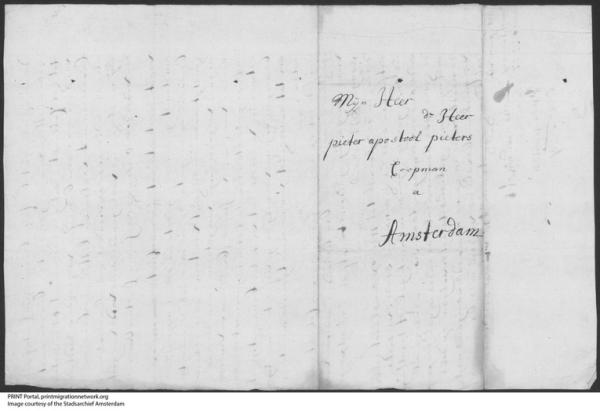 Mijn Heer
de Heer
pieter apostool pieters
Coopman
a
Amsterdam
PRINT Portal, printmigrationnetwork.org
Image courtesy of the Stadsarchief Amsterdam